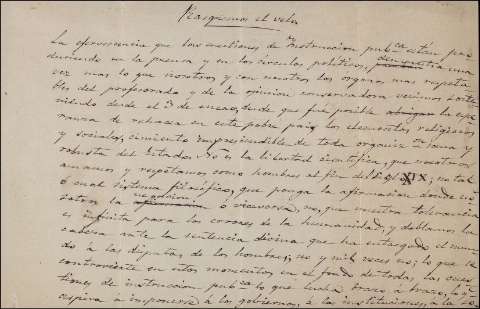 Rasguemos el velo
La efervescencia que las cuestiones de instruccion pubca están pro
duciendo en la prensa y en los círculos políticos, demuestra una
vez mas lo que nosotros y con nosotros los organos mas respeta
bles del profesorado y de la opinion conservadora venimos soste
niendo desde el 3 de enero, desde que fué posible abrigar la espe
ranza de rehacer en este pobre pais los elementos religiosos
y sociales, cimiento imprescindible de toda organizon sana y
robusta del Estado. No es la libertad científica, que nosotros
amamos y respetamos como hombres al fin del siglo XIX; no tal
ó cual sistema filosófico, que ponga la afirmacion donde no
sotros la negacion, ó viceversa, no, que nuestra tolerancia
es infinita para los errores de la humanidad, y doblamos la
cabeza ante la sentencia divina que ha entregado el mun
do á las disputas de los hombres; no y mil veces no; lo que se
controvierte en estos momentos en el fondo de todas las cues
tiones de instruccion pubca lo que lucha brazo á brazo, lo q.e
aspira á imponerse á los gobiernos, á las instituciones, á la